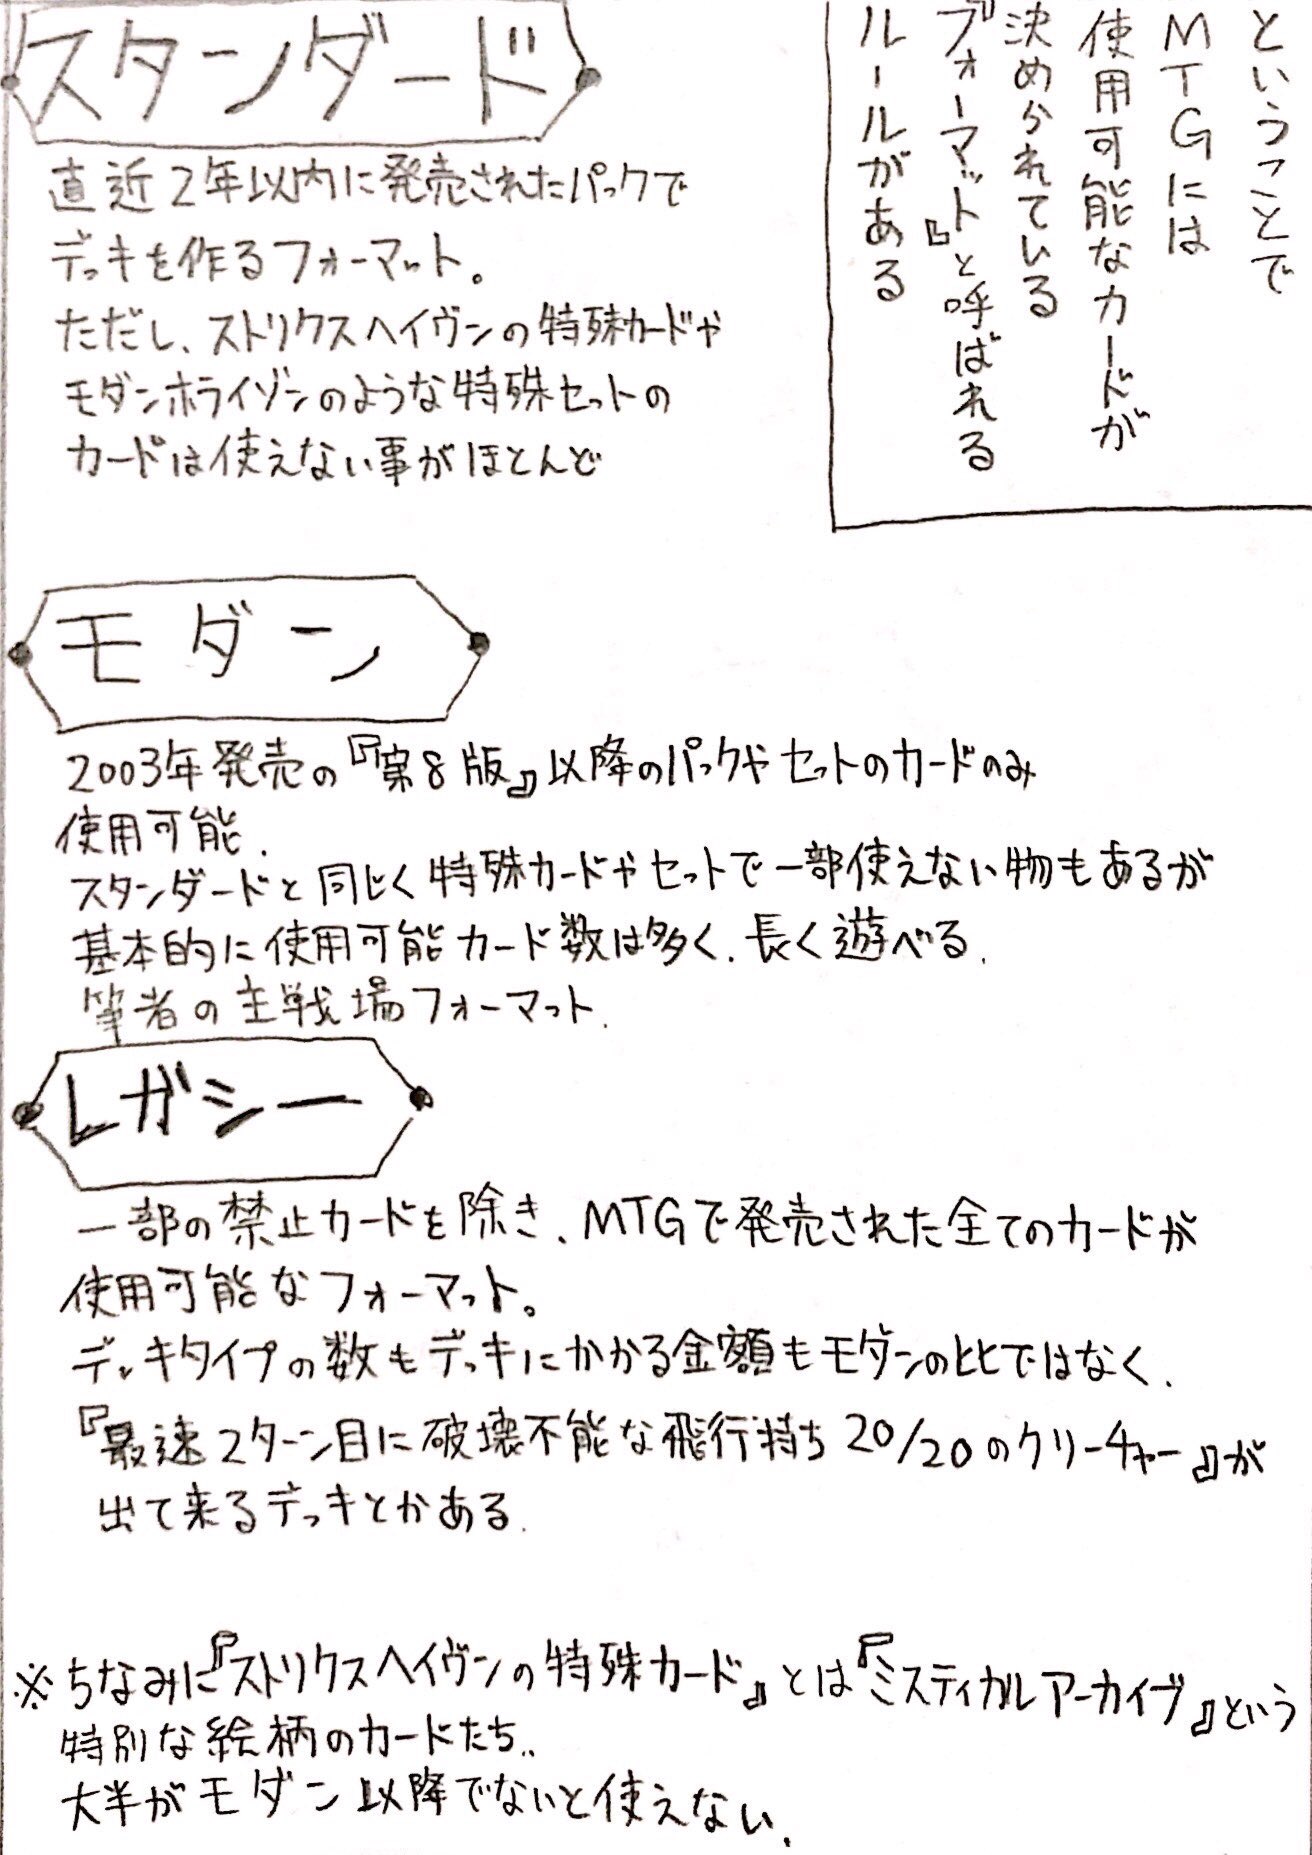 ということで
MTGには
使用可能なカードが
決められている
『フォーマット』と呼ばれる
ルールがある
スタンダード
直近2年以内に発売されたパックで
デッキを作るフォーマット。
ただし、ストリクスヘイヴンの特殊カードや
モダンホライゾンのような特殊セットの
カードは使えない事がほとんど
モダン
2003年発売の『第8版』以降のパックやセットのカードのみ
使用可能.
スタンダードと同じく特殊カードやセットで一部使えない物もあるが
基本的に使用可能カード数は多く、長く遊べる.
筆者の主戦場フォーマット.
レガシー
一部の禁止カードを除き、MTGで発売された全てのカードが
使用可能なフォーマット。
デッキタイプの数もデッキにかかる金額もモダンの比ではなく、
『最速2ターン目に破壊不能な飛行持ち20/20のクリーチャー』が
出て来るデッキとかある.
※ちなみに『ストリクスヘイヴンの特殊カード』とは『ミスティカルアーカイブ』という
特別な絵柄のカードたち..
大半がモダン以降でないと使えない、